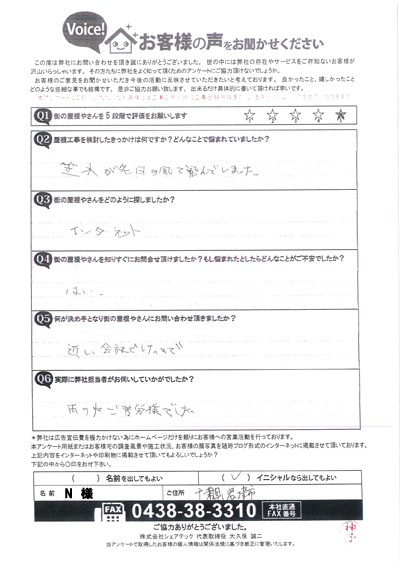 Voice!
お客様の声をお聞かせください
この度は弊社にお問い合わせを頂き誠にありがとうございました。世の中には弊社の存在やサービスをご存知ないお客様が
沢山いらっしゃいます。その方たちに弊社をよく知って頂くためのアンケートにご協力頂けないでしょうか。
お客様のご意見をお聞かせいただき今後の活動に反映させていただきたいと考えております。良かったこと、嬉しかったこと
どのような些細な事でも結構です。是非ご協力お願い致します。出来るだけ具体的に書いて頂ければ幸いです。
Q1 街の屋根やさんを5段階で評価をお願いします ☆ ☆ ☆ ☆ ★
Q2 屋根工事を検討したきっかけは何ですか?どんなことで悩まれていましたか?
が先日の風で飛んでしまった
Q3 街の屋根やさんをどのように探しましたか?
インターネット
Q4 街の屋根やさんを知りすぐにお問合せ頂けましたか?もし悩まれたとしたらどんなことがご不安でしたか?
はい。
Q5 何が決め手となり街の屋根やさんにお問い合わせ頂きましたか?
近い会社でしたので
Q6 実際に弊社担当者がお伺いしていかがでしたか?
雨の中ご苦労様でした
*弊社は広告宣伝費を極力かけない為にホームページだけを頼りにお客様への営業活動を行っております。
本アンケート用紙またはお客様宅の調査風景や施工状況、お客様の顔写真を随時ブログ形式のインターネットに掲載させて頂いております。
上記内容をインターネットや印刷物に掲載させて頂いてもよろしいでしょうか?
下記の中から〇印をお付け下さい。
( )名前を出してもよい ( ✓ )イニシャルなら出してもよい
名前 N 様 ご住所 千葉県君津市
FAX 0438-38-3310 本社直通 FAX番号
ご協力ありがとうございました。
株式会社シェアテック 代表取締役 大久保 誠二
当アンケートで取得したお客様の個人情報は関係法規に基づき厳正に管理いたします。